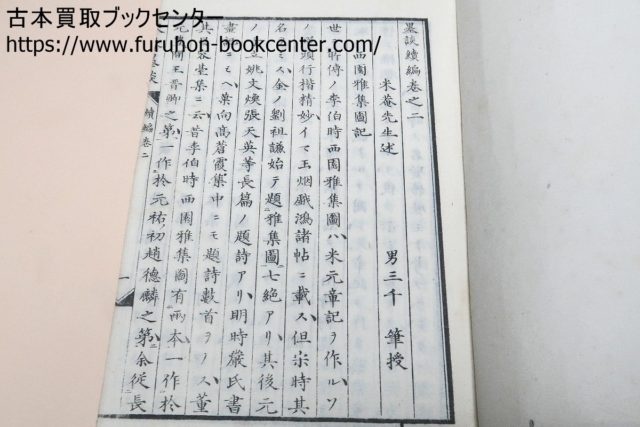 古本買取ブックセンター
https://www.furuhon-bookcenter.com/
墨談續編卷之二
米菴先生述　男三千　筆授
西園雅集圖記
世ニ時傳ノ李伯時西園雅集圖ハ米元章記ヲ作ルソ
楷頭行楷精妙イマ玉烟戯鴻諸帖ニ載ス但宗時其
名ミス金ノ劉祖謙始テ題雅集圖七絶アリ其後元
ノ立姚文煥張天英等長篇ノ題詩アリ明時嚴氏書
畫ミヘ葉向髙蒼霞集中ニモ題詩數首ヲノス董
其容臺集ニ云昔李伯時西園雅集圖有兩本一作於
元間王晋卿之第一作於元祐ノ初趙德麟之第余従長
續編卷二
一